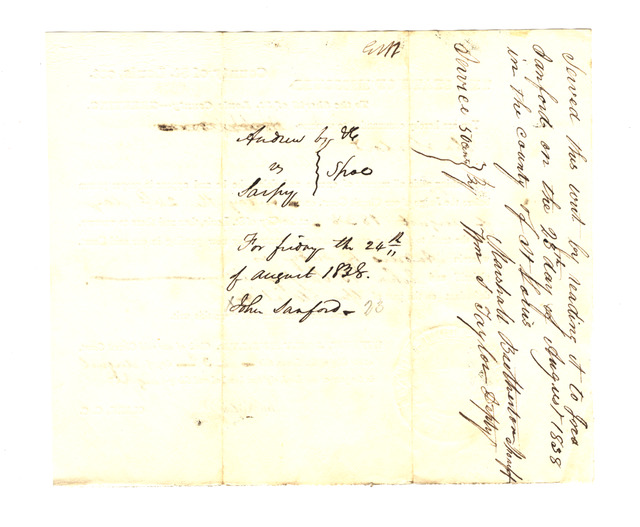 Andrew by &c
vs } Spoe
Sarpy
For friday the 24th
of august 1838.
John Sanford
Served this writ by reading it to Jno
Sanford, on the 23th day of August 1838
in the county of St Louis
Marshall Brotherton Sheriff
Service 50
Wm S Taylor Depy